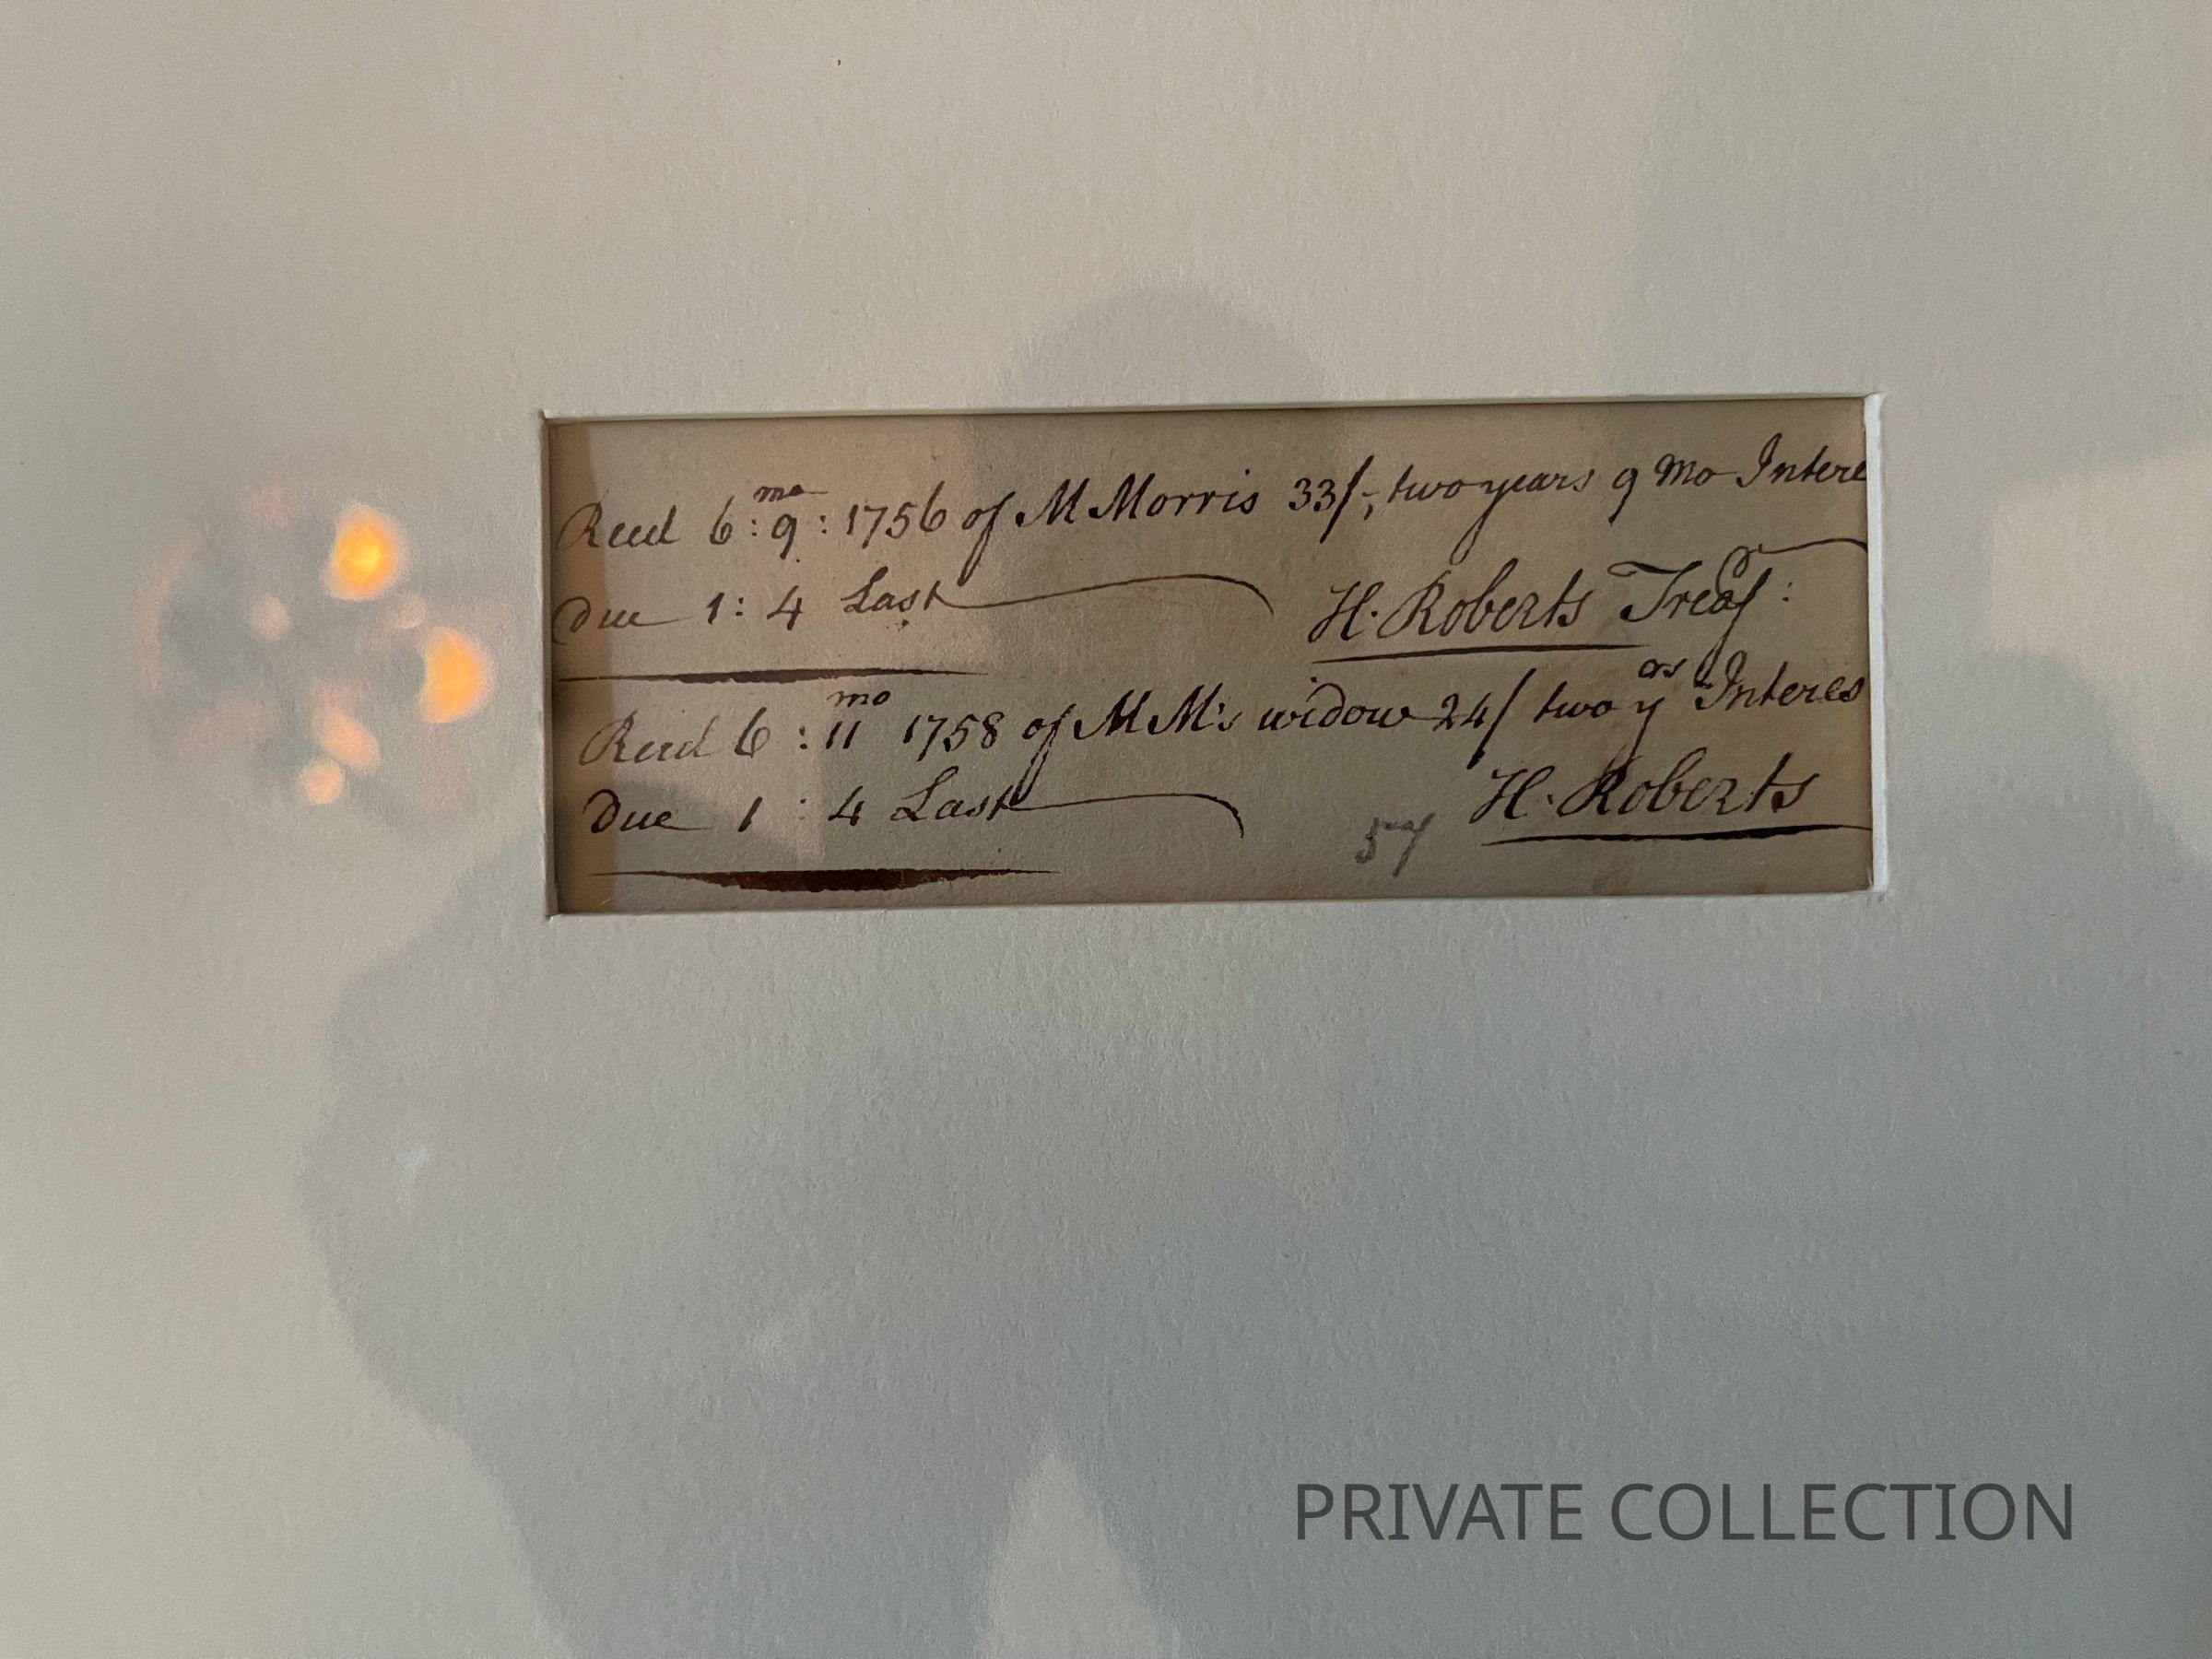 Recd 6: 9mo: 1756 of M Morris 33/-, two years 9 Mo Intere
Due 1: 4 Last
H. Roberts Treasr:
Recd 6: 11mo 1758 of M M's widow 24/ two yrs Interes
Due 1: 4 Last
H. Roberts
57
PRIVATE COLLECTION